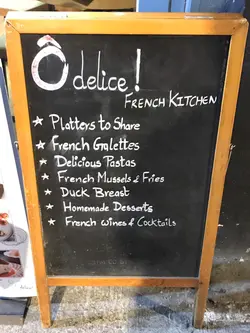 Ô delice!
FRENCH KITCHEN
★ Platters to Share
★ French Galettes
★ Delicious Pastas
★ French Mussels & Fries
★ Duck Breast
★ Homemade Desserts
★ French Wines & Cocktails